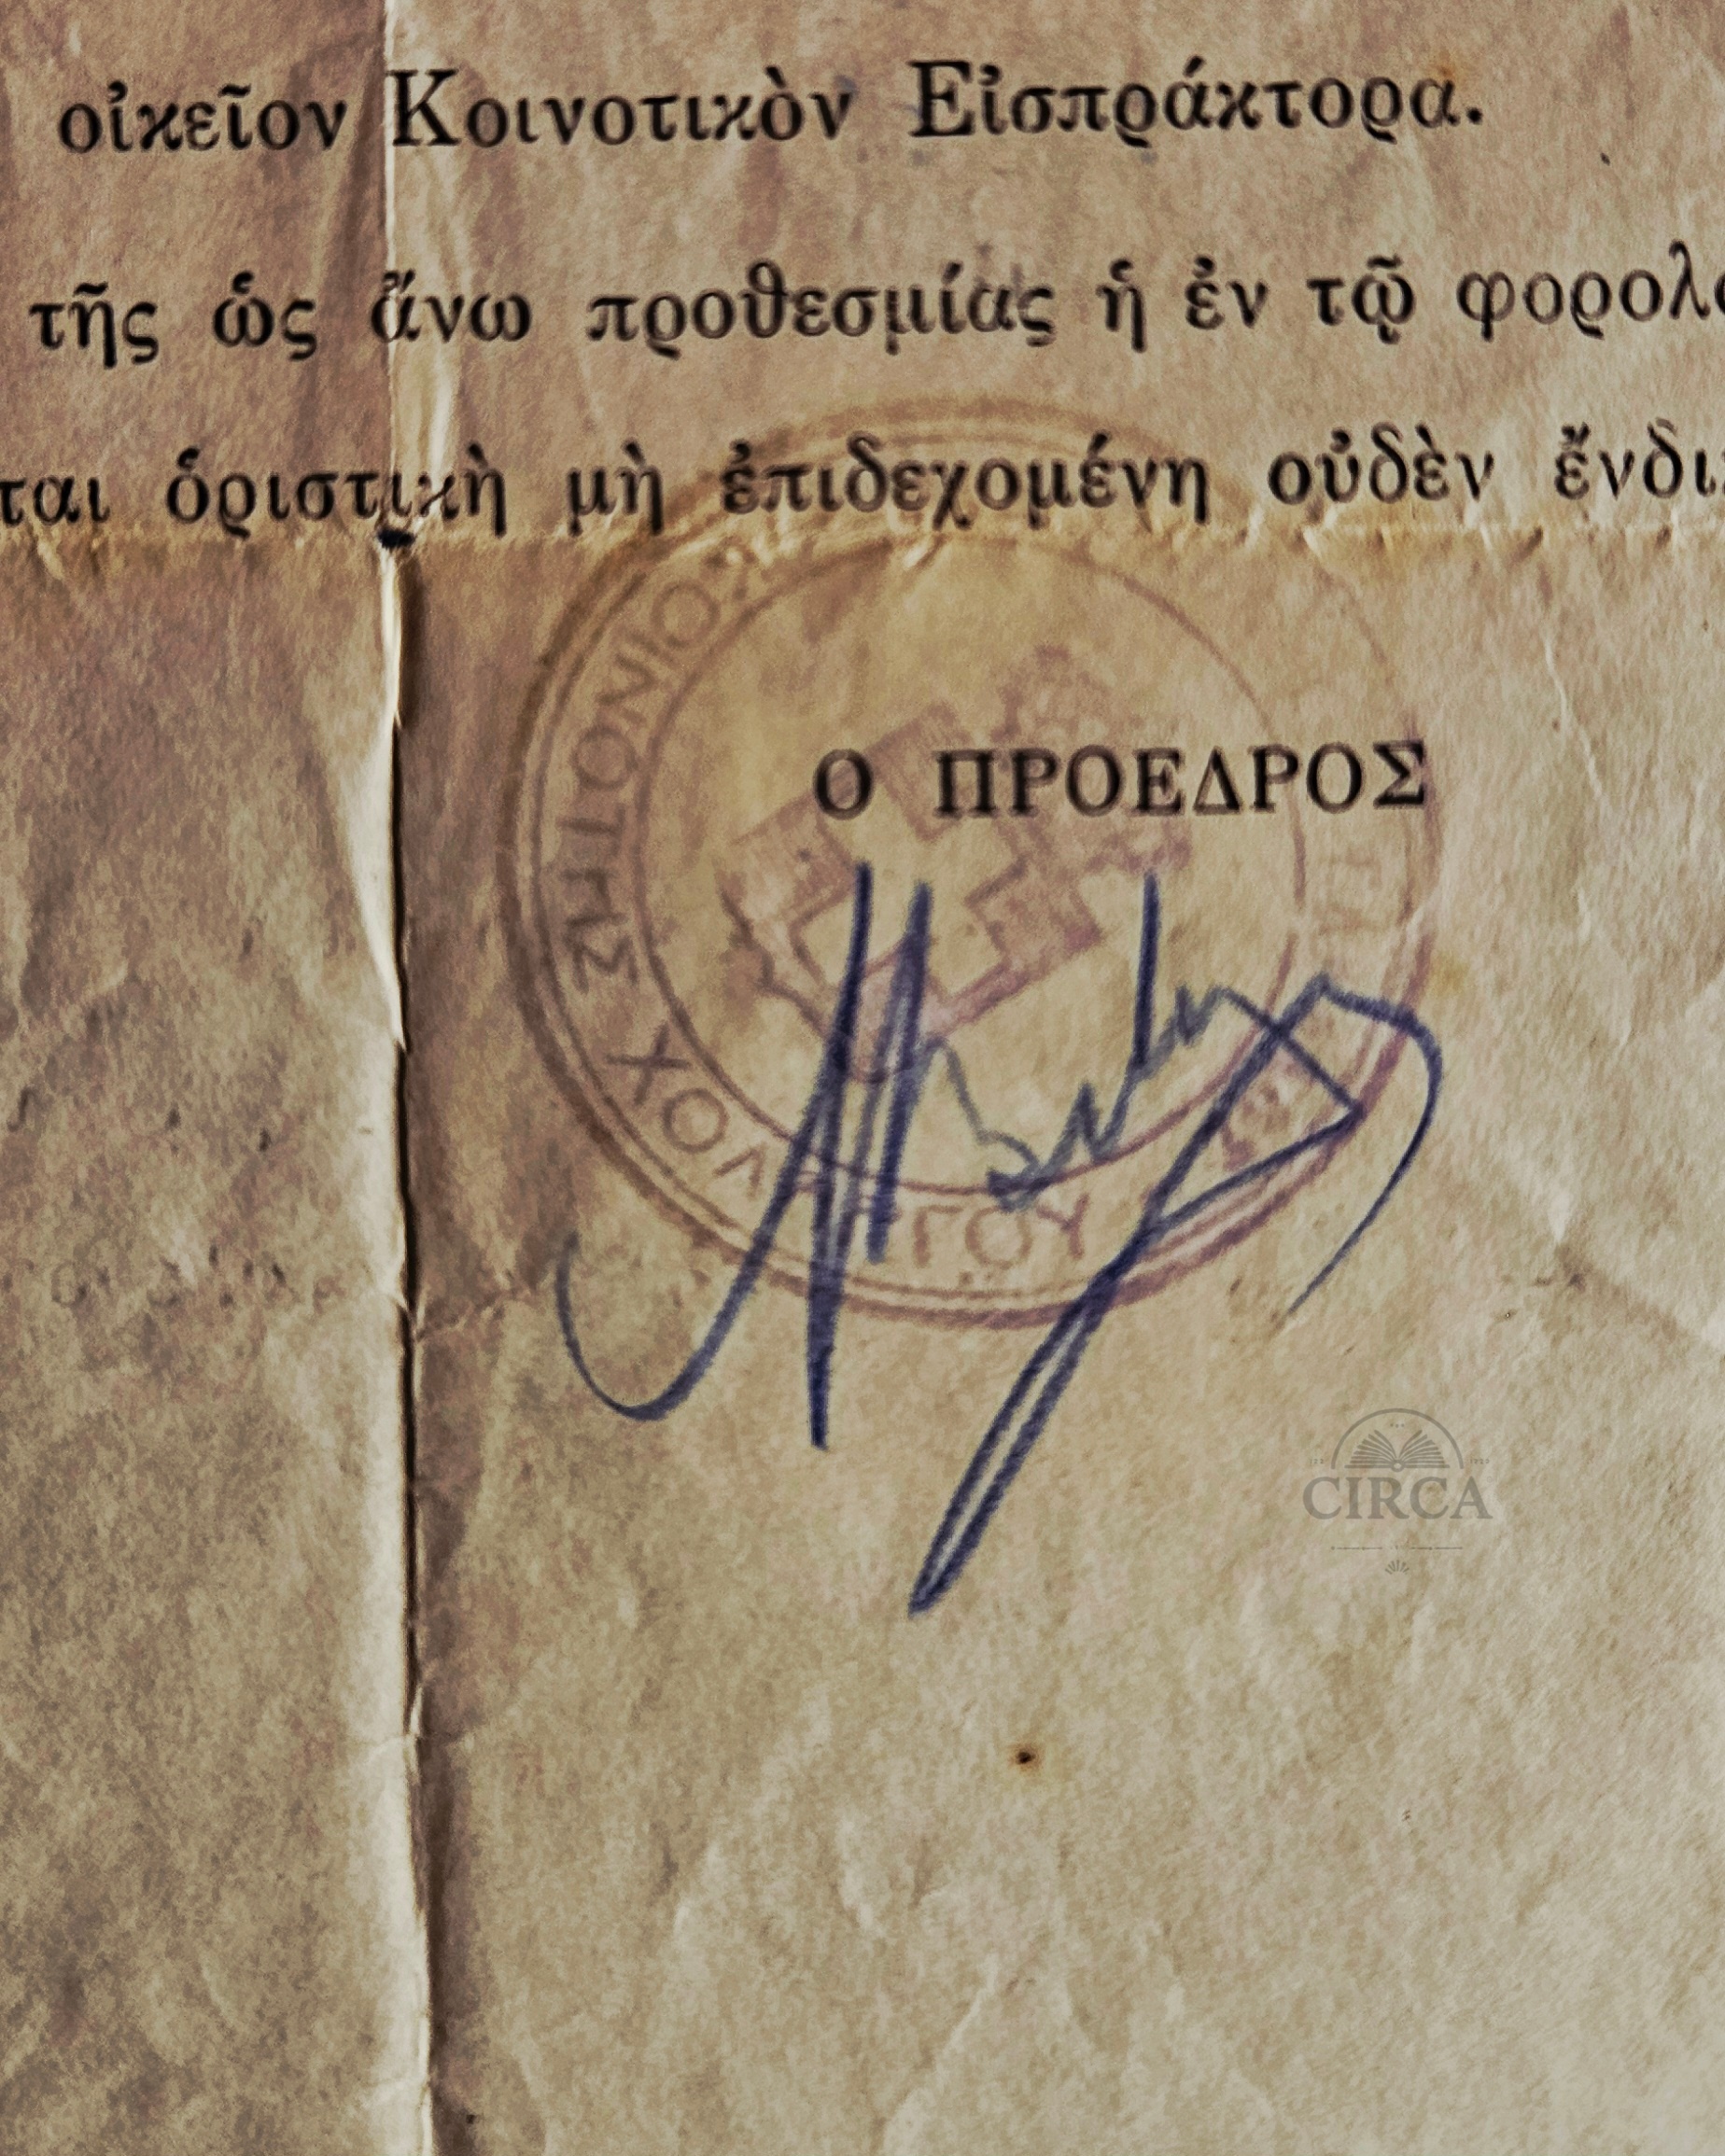 οἰκεῖον Κοινοτικὸν Εἰσπράκτορα.
τῆς ὡς ἄνω προθεσμίας ἡ ἐν τῷ φορολο
ται ὁριστικὴ μὴ ἐπιδεχομένη οὐδὲν ἔνδι
Ο ΠΡΟΕΔΡΟΣ
CIRCA